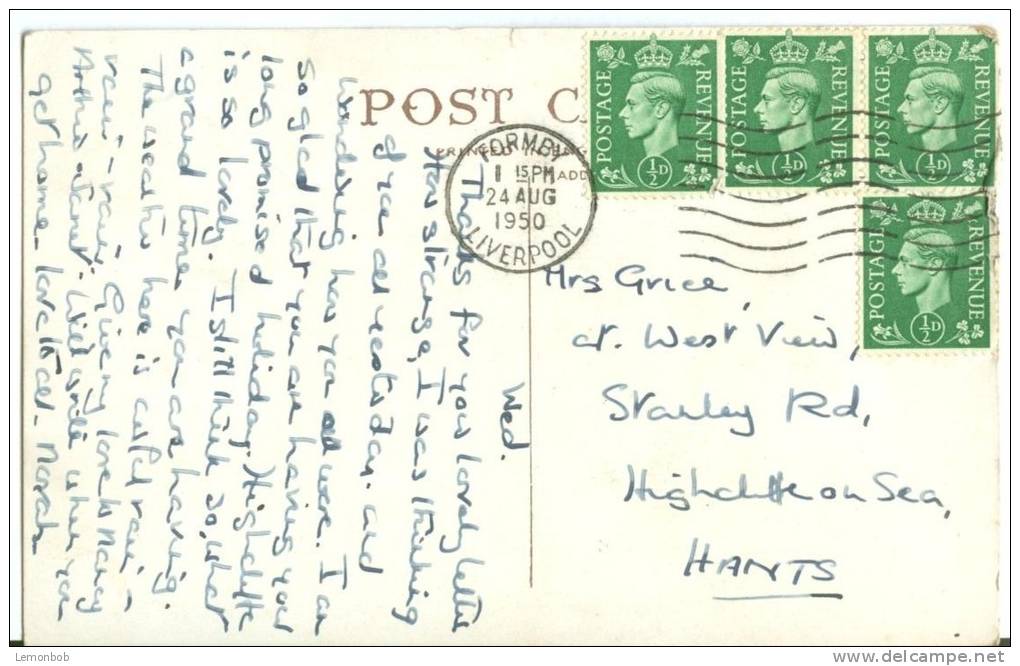 POST CA
PRINTED
ADD
FORMBY
1 15 PM
24 AUG
1950
LIVERPOOL
POSTAGE REVENUE
½D
POSTAGE REVENUE
½D
POSTAGE REVENUE
½D
POSTAGE REVENUE
½D
Wed.
Thanks for your lovely letter
How strange, I was thinking
of you all yesterday. and
wondering how you all were. I am
so glad that you are having your
long promised holiday. Highcliffe
is so lovely. I still think so, what
a grand time you are having.
The weather here is awful rain -
rain - rain. Give my love to Nancy
Arthur & Janet. Will write when you
get home. love to all. Norah
Mrs Grice,
at. West View,
Stanley Rd,
Highcliffe on Sea,
HANTS
Lemonbob
delcampe.net